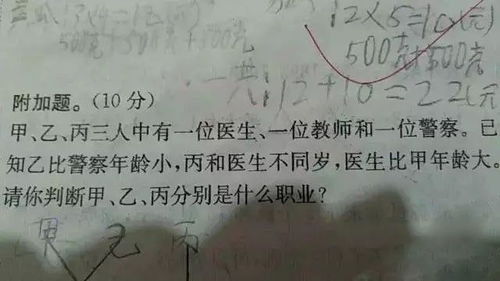 2×5=10(元)
500克+500克
500克+500克+500克
一共:12+10=22(元
附加题。(10分)
甲、乙、丙三人中有一位医生、一位教师和一位警察。已
知乙比警察年龄小,丙和医生不同岁,医生比甲年龄大。
请你判断甲、乙、丙分别是什么职业?
甲 乙 丙